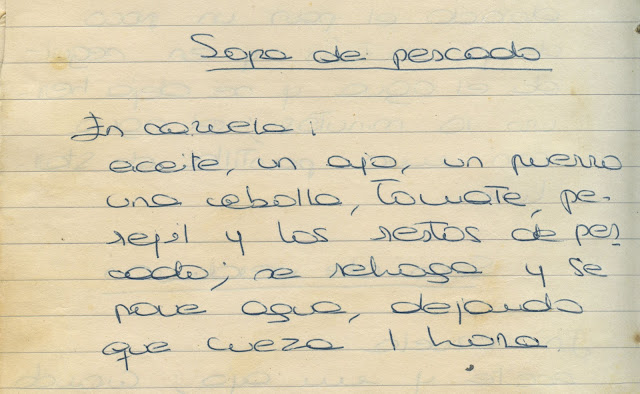 Sopa de pescado
En cazuela:
aceite, un ajo, un puerro
una cebolla, Tomate, pe-
rejil y los restos de pes
cado; se rehoga y se
pone agua, dejando
que cueza 1 hora.